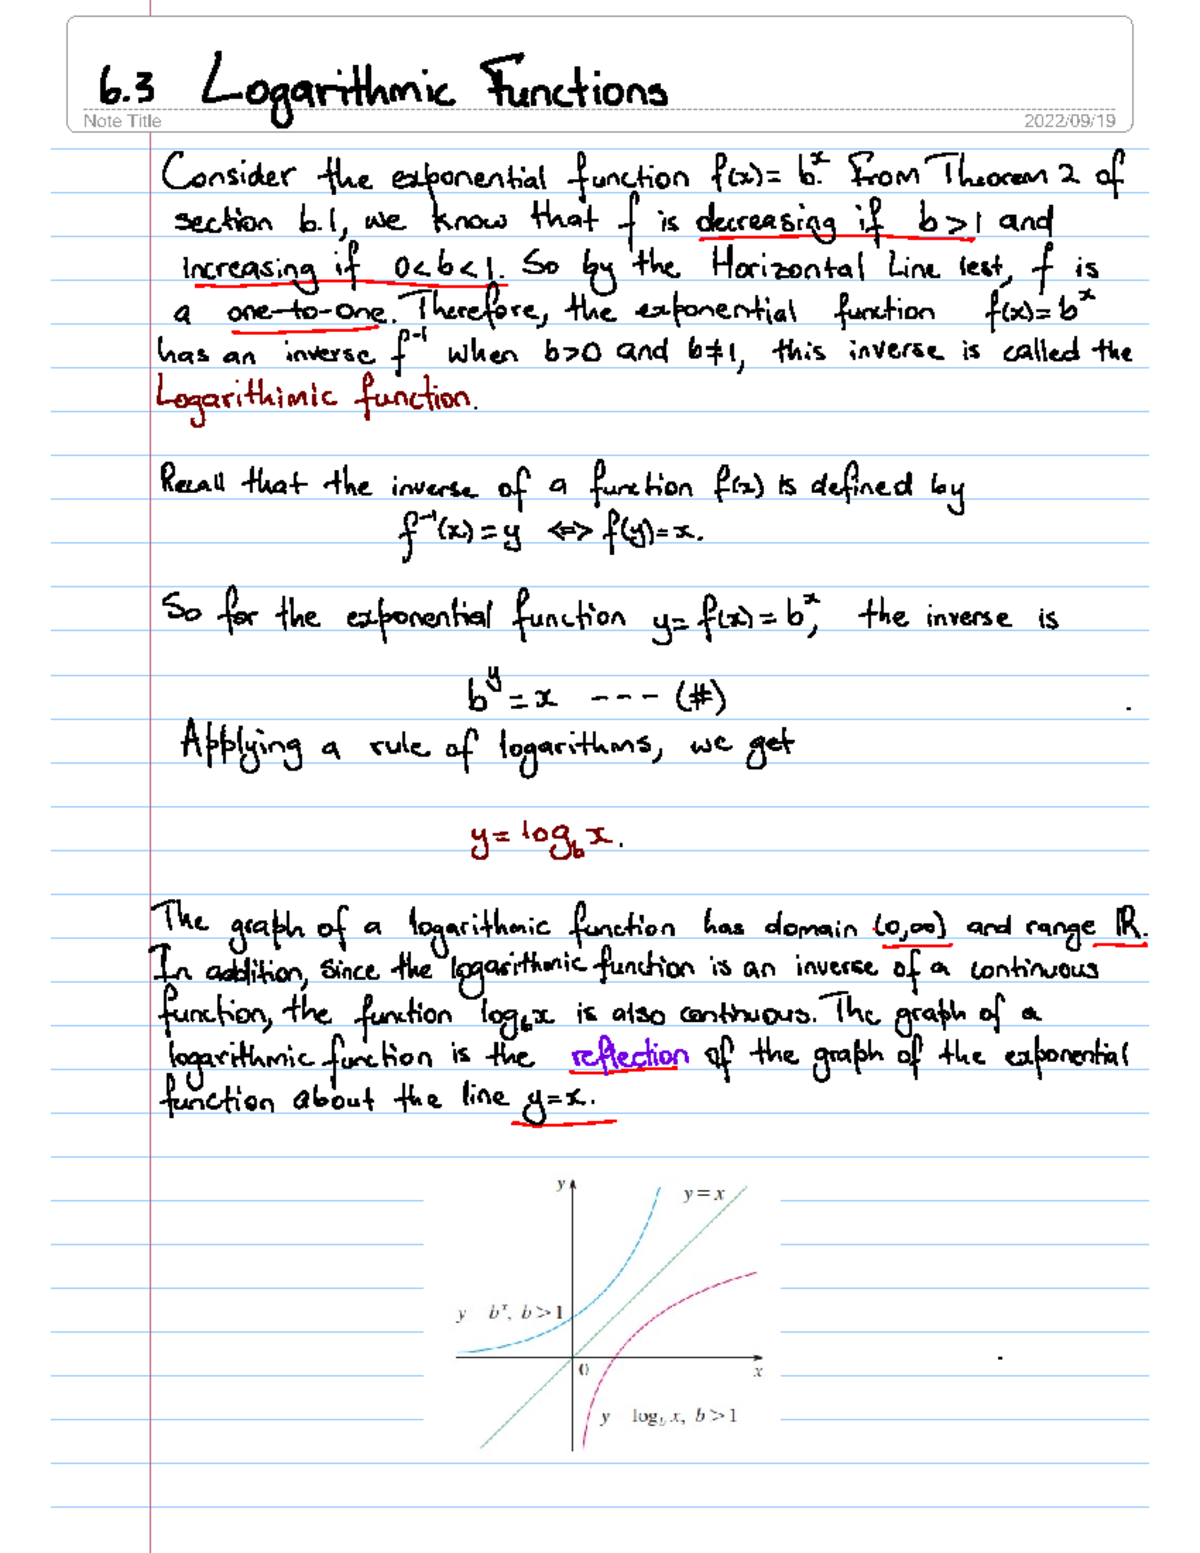 6.3 Logarithmic Functions
Note Title
2022/09/19
Consider the exponential function f(x) = bˣ. From Theorem 2 of
section 6.1, we know that f is decreasing if b > 1 and
increasing if 0 < b < 1. So by the Horizontal Line Test, f is
a one-to-one. Therefore, the exponential function f(x) = bˣ
has an inverse f⁻¹ when b>0 and b≠1, this inverse is called the
Logarithimic function.
Recall that the inverse of a function f(x) is defined by
f⁻¹(x) = y ⇔ f(y) = x.
So for the exponential function y = f(x) = bˣ, the inverse is
bʸ = x --- (#)
Applying a rule of logarithms, we get
y = log_b x.
The graph of a logarithmic function has domain (0,∞) and range ℝ.
In addition, since the logarithmic function is an inverse of a continuous
function, the function log_b x is also continuous. The graph of a
logarithmic function is the reflection of the graph of the exponential
function about the line y=x.
y
y = x
y bˣ, b > 1
0
x
y log_b x, b > 1